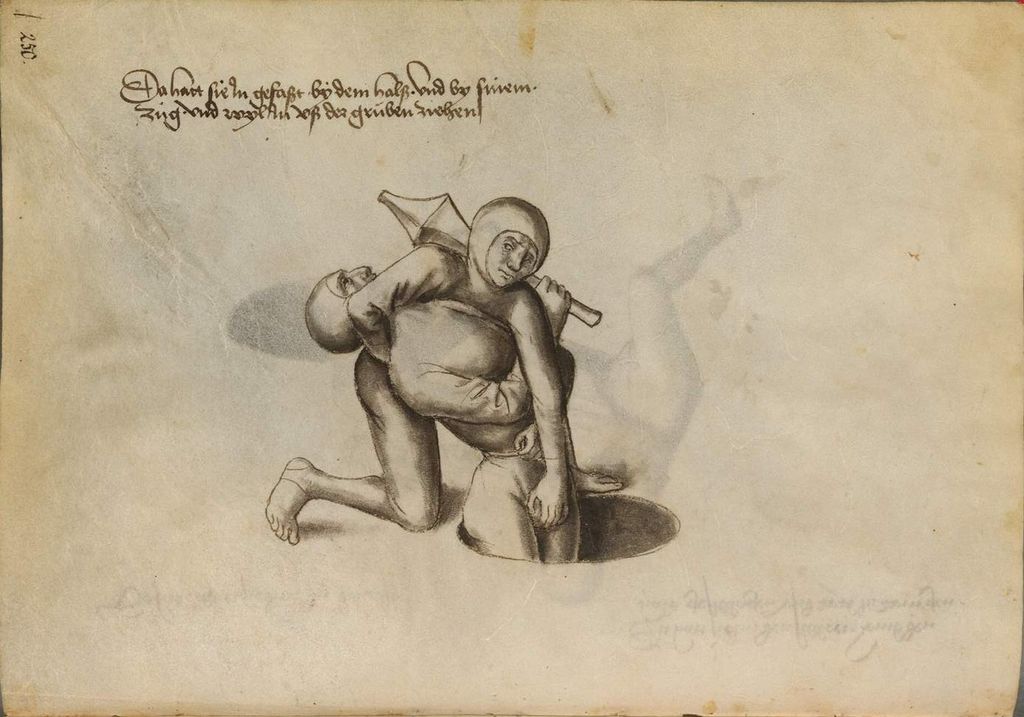 250.
Da hatt sie In gefasst by dem halss vnd by sinem
zúg vnd wyl In vss der grůben ziehen